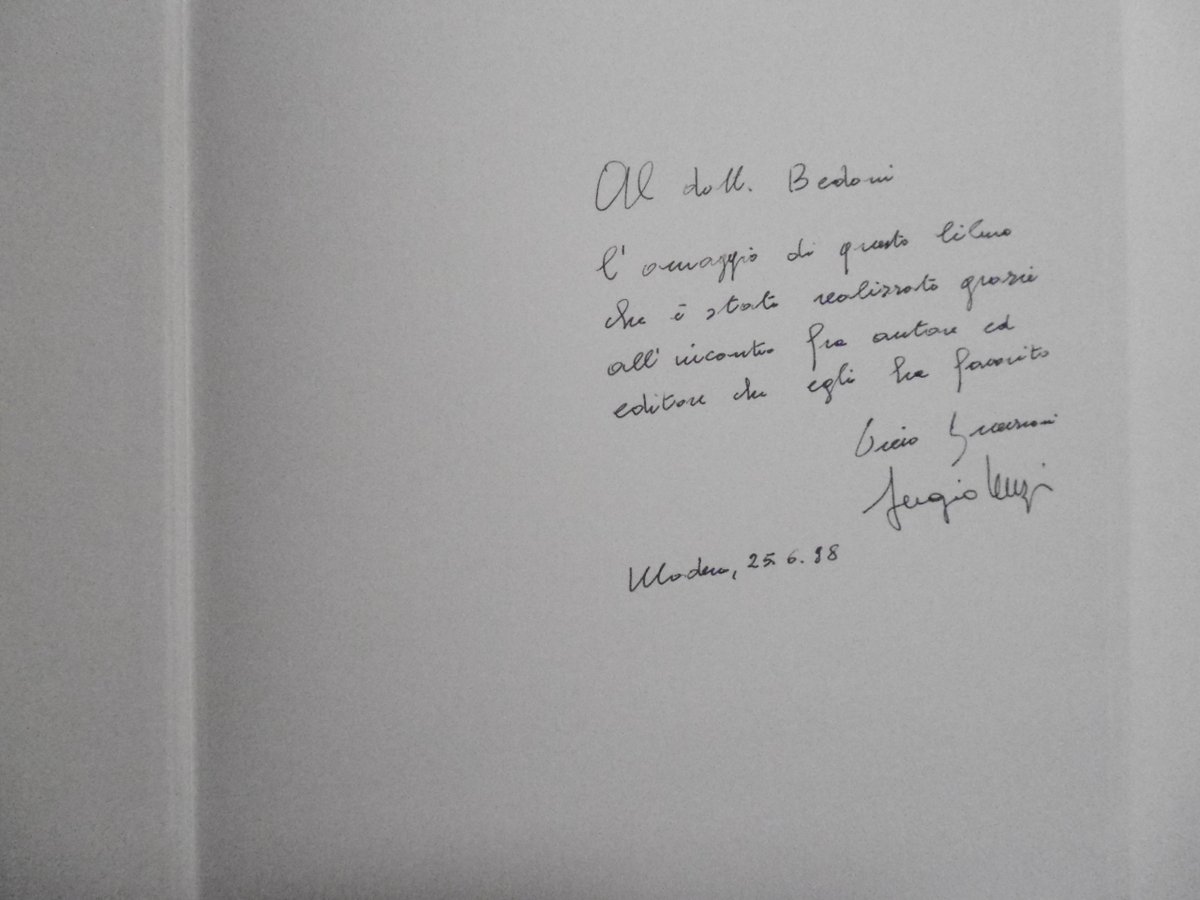 Al dott. Bedoni
l'omaggio di questo libro
che è stato realizzato grazie
all'incontro fra autore ed
editore che egli ha favorito
Sergio
Modena, 25.6.98